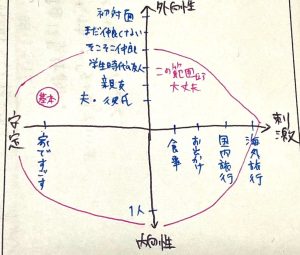 外向性
初対面
まだ仲良くない
そこそこ仲良し
学生時代の友人
親友
夫・彼氏
この範囲なら
大丈夫
基本
安定
刺激
家ですごす
食事
お出かけ
国内旅行
海外旅行
1人
内向性